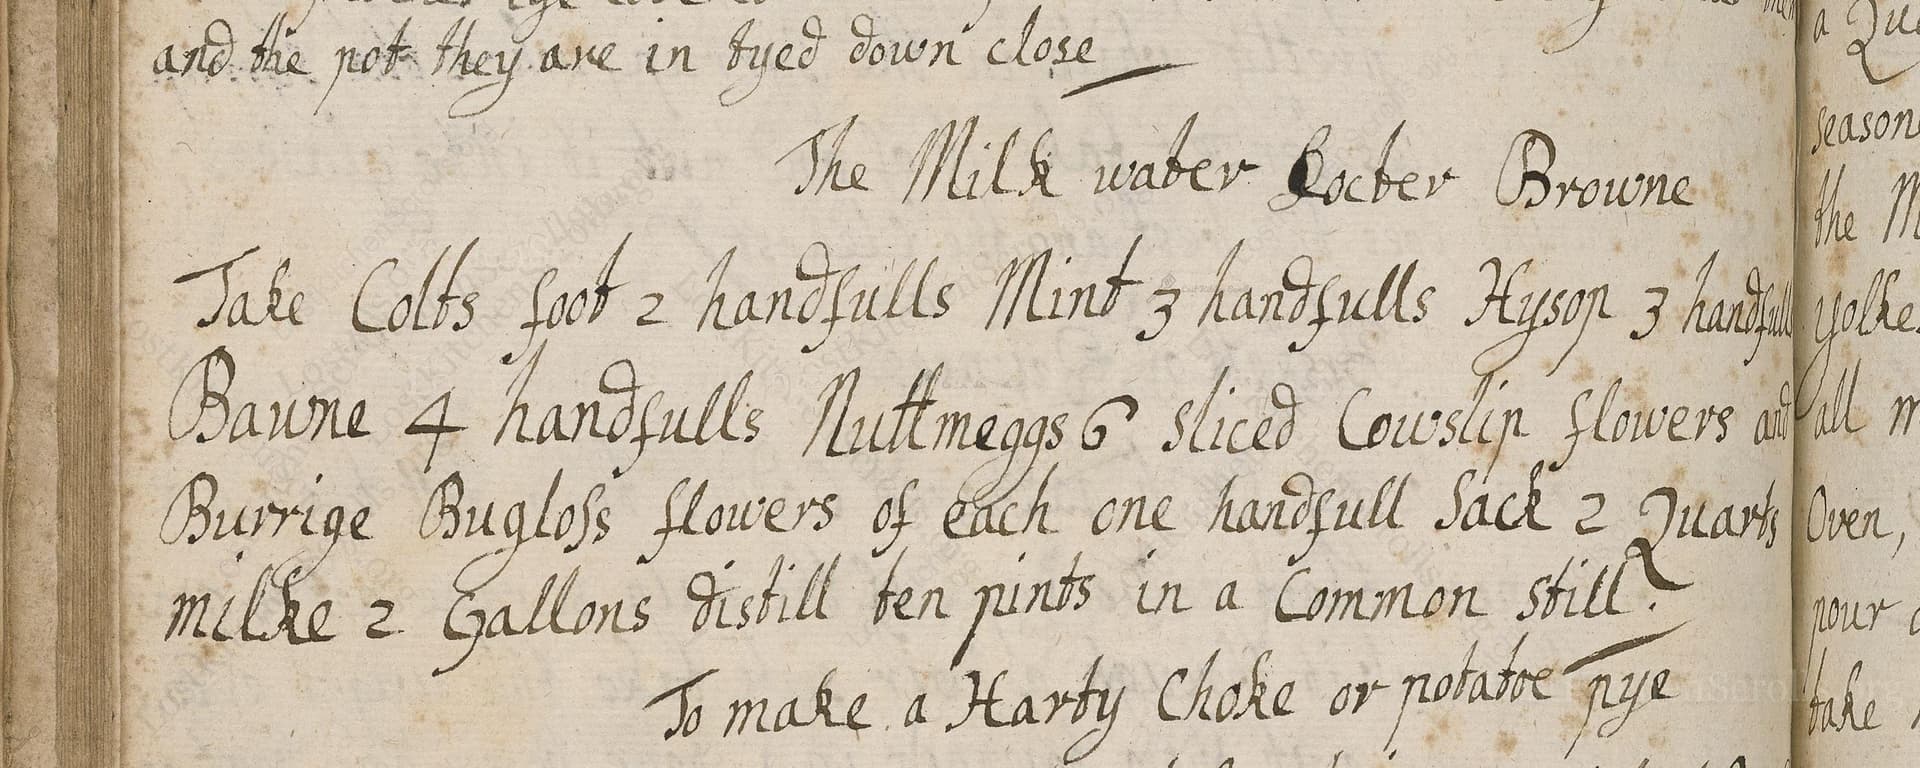 and the pot they are in tyed down close
The Milk water Docter Browne
Take Colts foot 2 handfulls Mint 3 handfulls Hysop 3 handfulls
Bawne 4 handfulls Nuttmeggs 6 sliced Cowslip flowers and
Burrige Bugloss flowers of each one handfull Sack 2 Quarts
milke 2 Gallons distill ten pints in a Common still.
To make a Harty Choke or potatoe pye
a
season
the
yolke
all
Oven,
pour
take